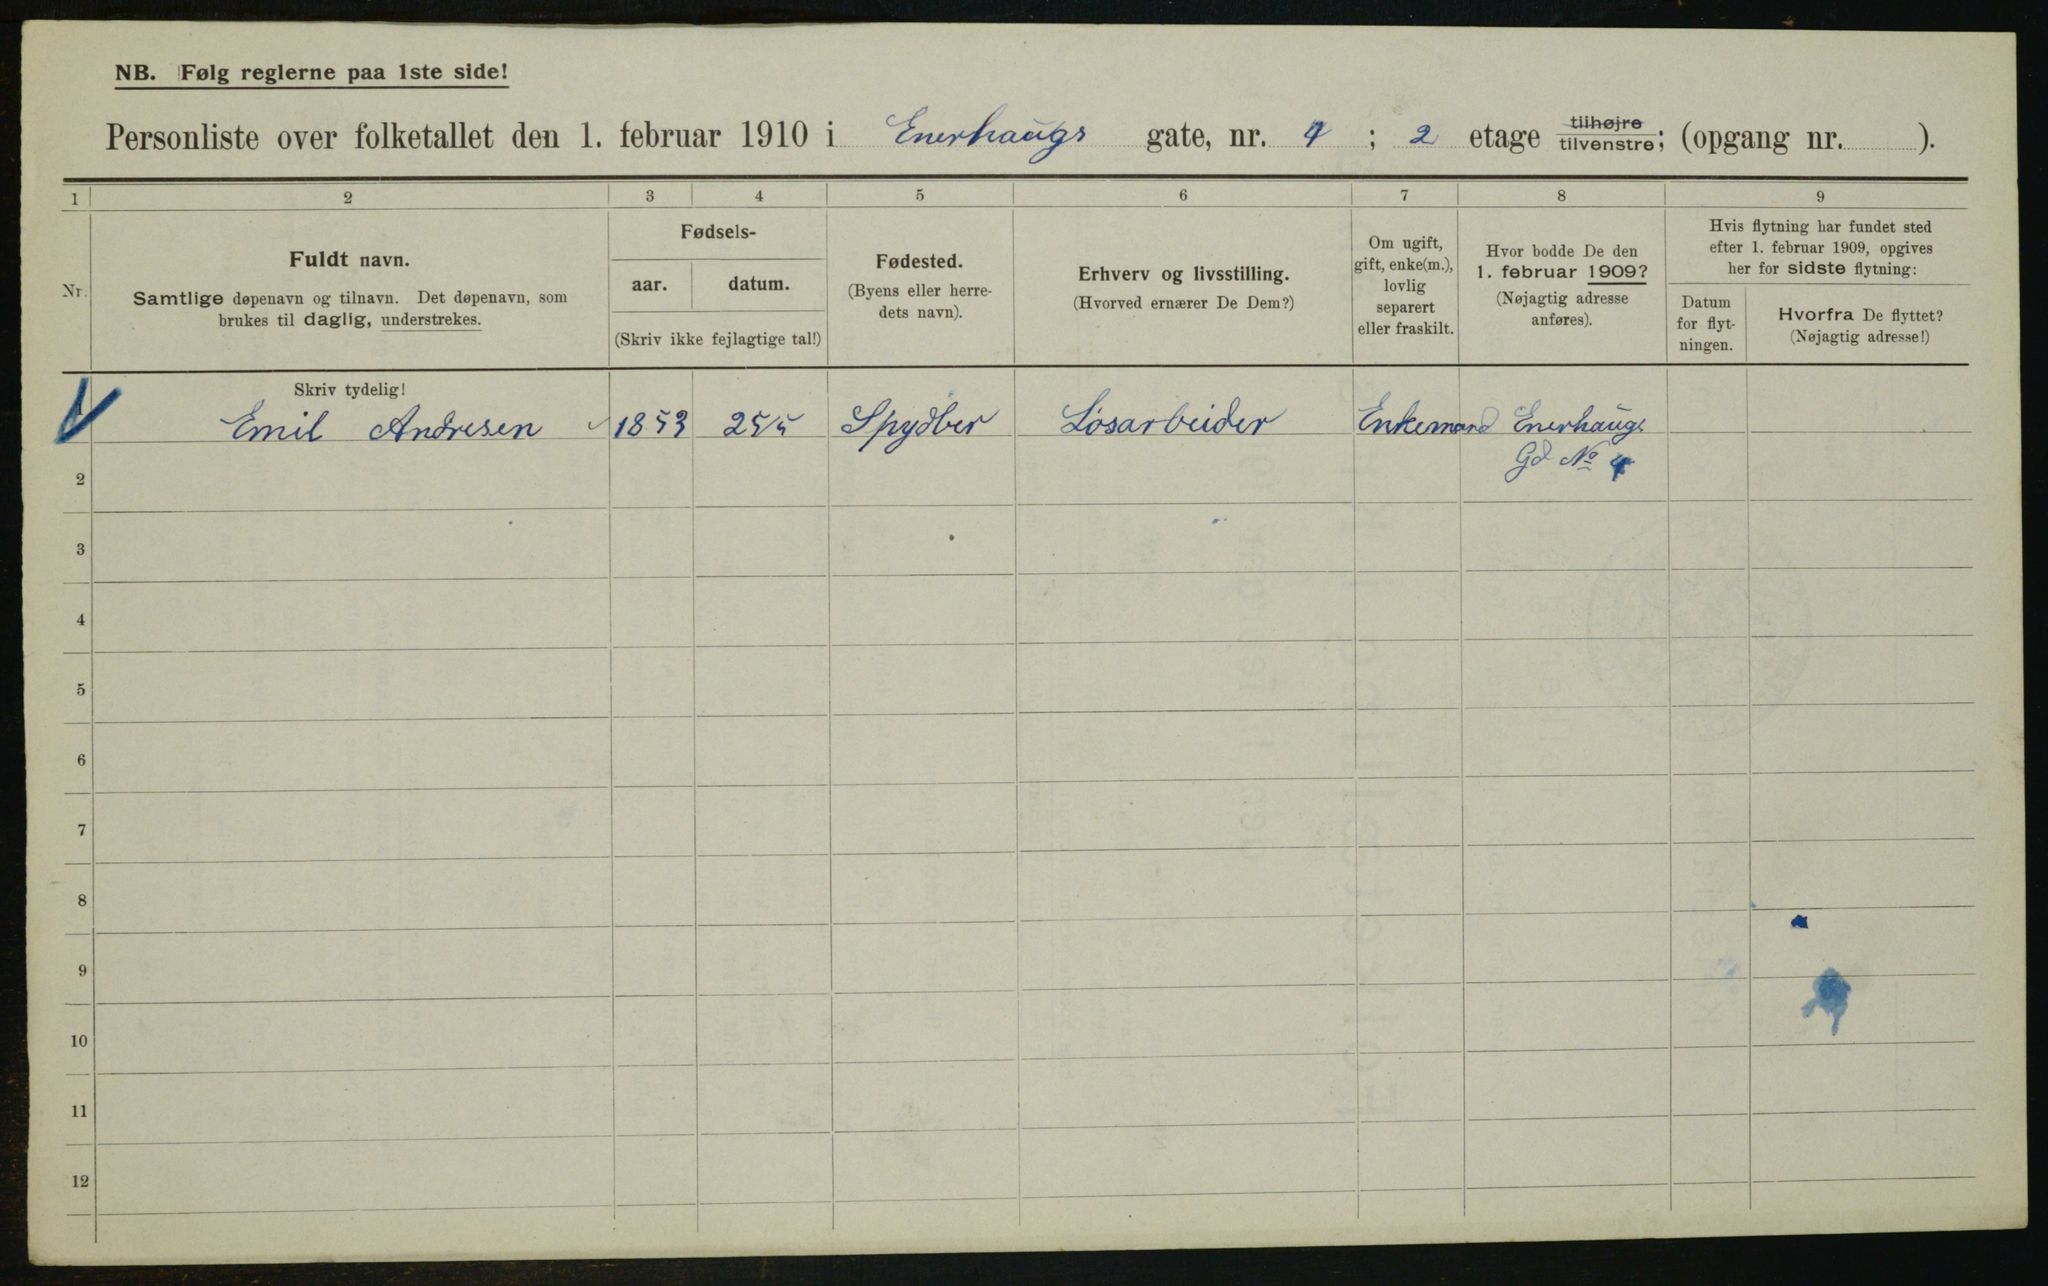 NB. Følg reglerne paa 1ste side!
Personliste over folketallet den 1. februar 1910 i Enerhaugs gate, nr. 4 ; 2 etage tilhøjre tilvenstre; (opgang nr. ).
1 2 3 4 5 6 7 8 9
Nr.
Fuldt navn.
Samtlige døpenavn og tilnavn. Det døpenavn, som
brukes til daglig, understrekes.
Fødsels-
aar. datum.
(Skriv ikke fejlagtige tal!)
Fødested.
(Byens eller herre-
dets navn).
Erhverv og livsstilling.
(Hvorved ernærer De Dem?)
Om ugift,
gift, enke(m.),
lovlig
separert
eller fraskilt.
Hvor bodde De den
1. februar 1909?
(Nøjagtig adresse
anføres).
Hvis flytning har fundet sted
efter 1. februar 1909, opgives
her for sidste flytning:
Datum
for flyt-
ningen.
Hvorfra De flyttet?
(Nøjagtig adresse!)
Skriv tydelig!
1 Emil Andresen 1853 25/5 Spydber Løsarbeider Enkemand Enerhaugs
Gd No 4
2
3
4
5
6
7
8
9
10
11
12